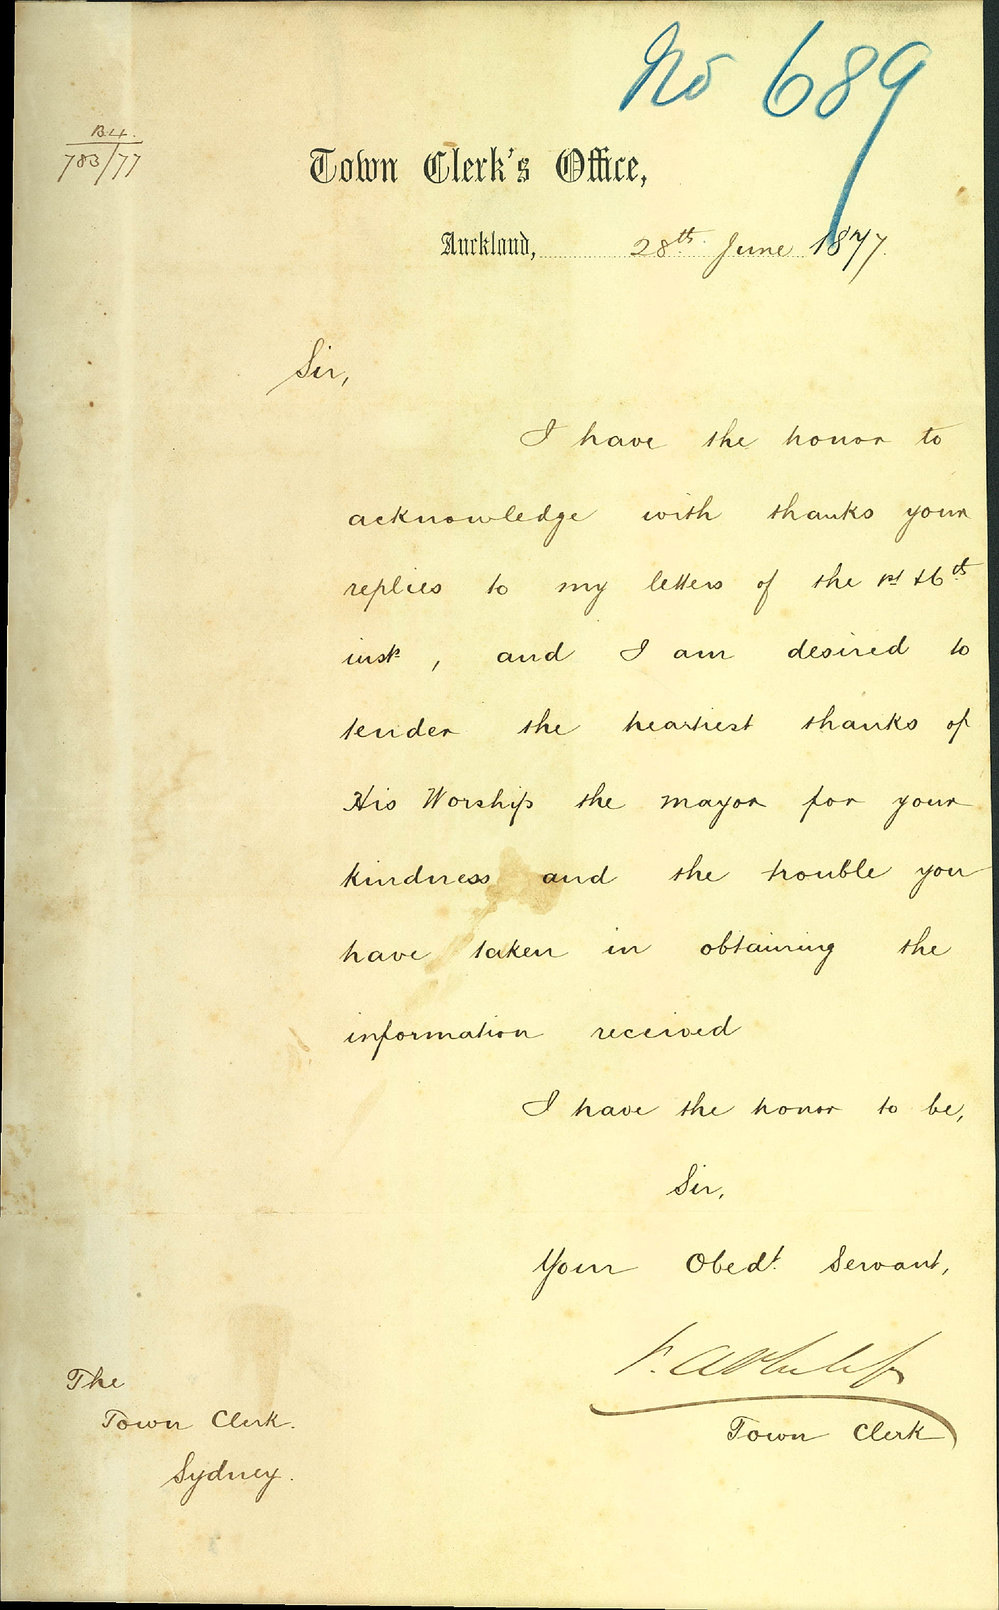 No 689
B4.
783/77
Town Clerk's Office,
Auckland, 28th June 1877.
Sir,
I have the honor to
acknowledge with thanks your
replies to my letters of the 1st & 6th
inst, and I am desired to
tender the heartiest thanks of
His Worship the mayor for your
kindness and the trouble you
have taken in obtaining the
information received
I have the honor to be,
Sir,
Your Obedt. Servant,
Town Clerk
The
Town Clerk.
Sydney.